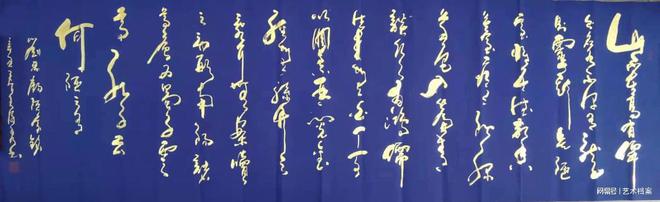 山不在高有仙
则名水不在深有龙
则灵斯是陋
室惟吾德馨苔
痕上阶绿草
色入帘青
谈笑有鸿儒
往来无白丁可
以调素琴阅金
经无丝竹之
乱耳无案牍
之劳形南阳
诸葛庐西蜀子云
亭孔子云
何陋之有
刘禹锡陋室铭
网易号 | 艺术档案